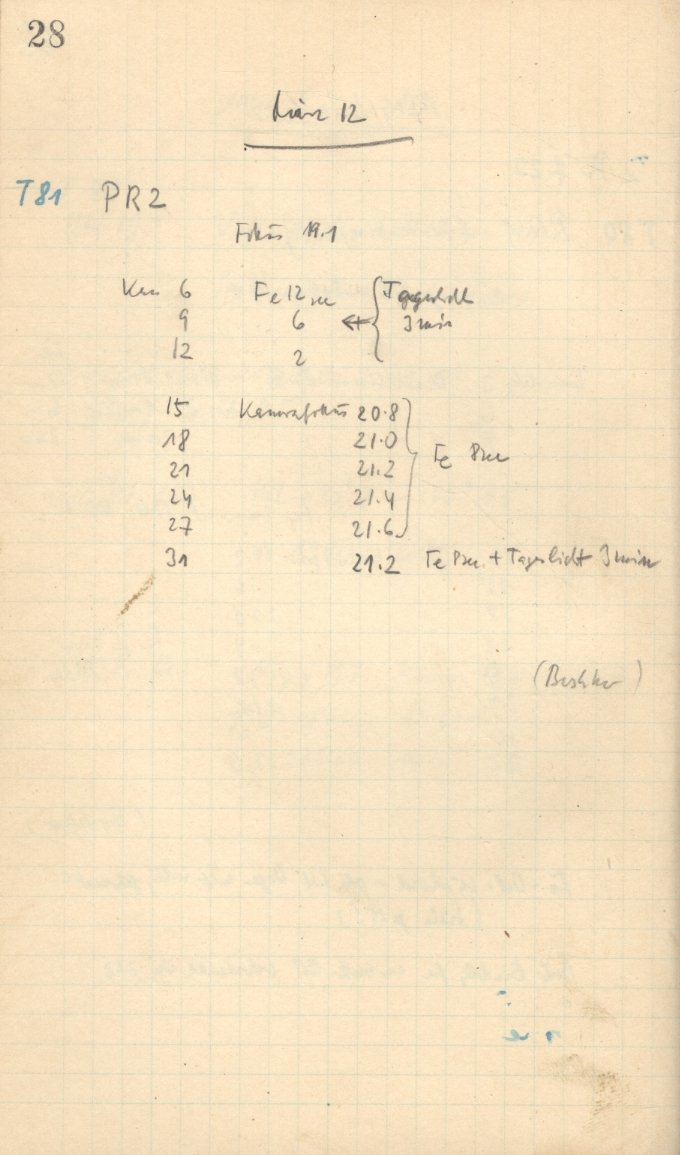 28
März 12
T81 PR2
Fokus 19.1
6 Fe 12 sec Tageslicht
9 6 3 min
12 2
15 Kamerafokus 20.8
18 21.0
21 21.2 Fe 8 sec
24 21.4
27 21.6
31 21.2 Fe 8 sec. + Tageslicht 3 min